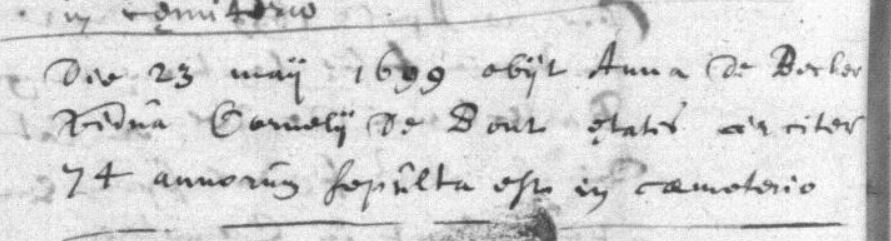 in cemiterio
Die 23 maij 1699 obijt Anna De Becker
Vidua Cornelij De Bont etatis circiter
74 annorum sepulta est in cœmeterio